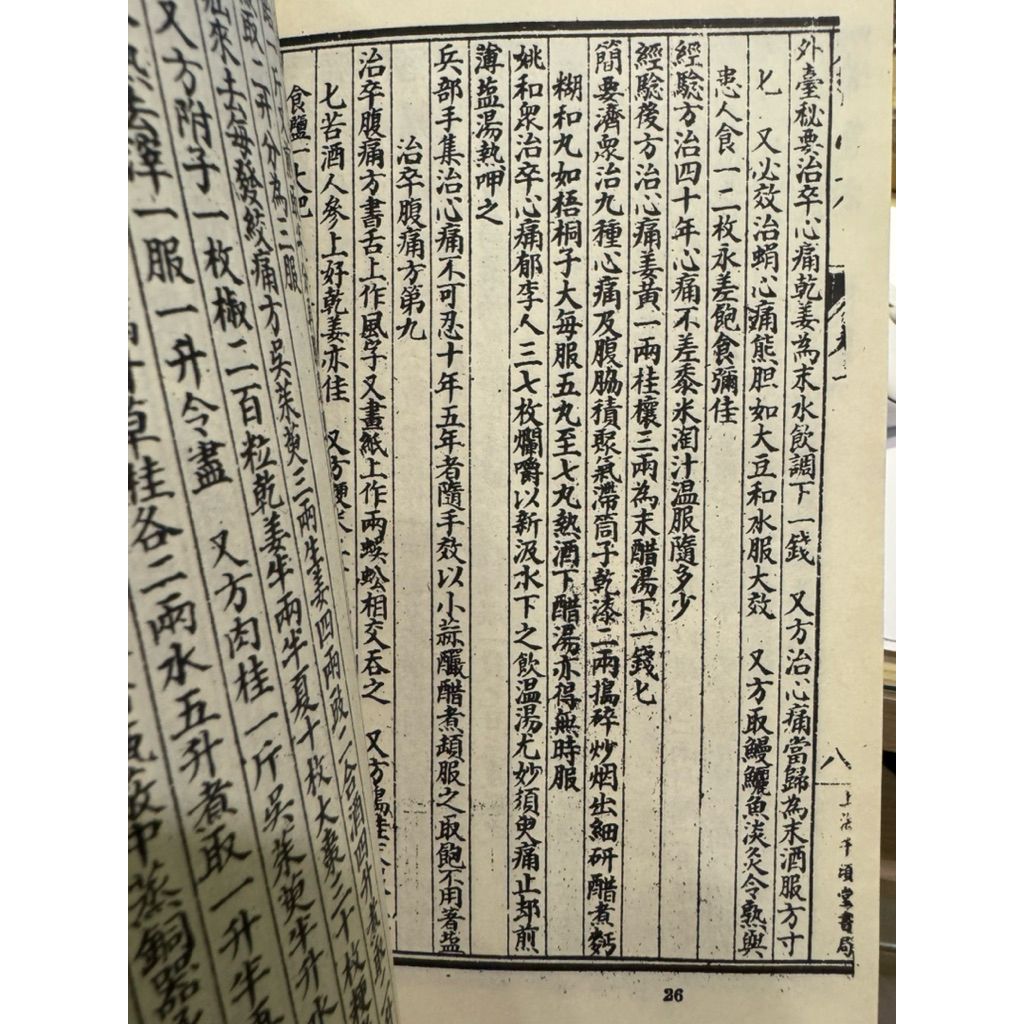 外臺秘要治卒心痛乾姜為末水飲調下一錢　又方治心痛當歸為末酒服方寸
匕　又必效治蜎心痛熊胆如大豆和水服大效　又方取鰻鱺魚淡炙令熟與
患人食一二枚永差飽食彌佳
經驗方治四十年心痛不差黍米淘汁温服隨多少
經驗後方治心痛姜黄一兩桂穰三兩為末醋湯下一錢匕
簡要濟衆治九種心痛及腹脇積聚氣滯筒子乾漆二兩搗碎炒烟出細研醋煮麪
糊和丸如梧桐子大每服五丸至七丸熱酒下醋湯亦得無時服
姚和衆治卒心痛郁李人三七枚爛嚼以新汲水下之飲温湯尤妙須臾痛止却煎
薄盐湯熱呷之
兵部手集治心痛不可忍十年五年者隨手效以小蒜釅醋煮頓服之取飽不用著盐
治卒腹痛方第九
治卒腹痛方書舌上作風字又畫紙上作兩蜈蚣相交吞之　又方搗桂
七苦酒人參上好乾姜亦佳　又方
食鹽一大把
二升分為二服
疰來土每發絞痛方吳茱萸三兩生姜四兩豉二合酒四升煮
又方附子一枚椒二百粒乾姜半兩半夏十枚大棗三十枚粳
一服一升令盡　又方肉桂一斤吳茱萸半升水
草桂各二兩水五升煮取一升半
蒸銅器
八
上海千頃堂書局
26